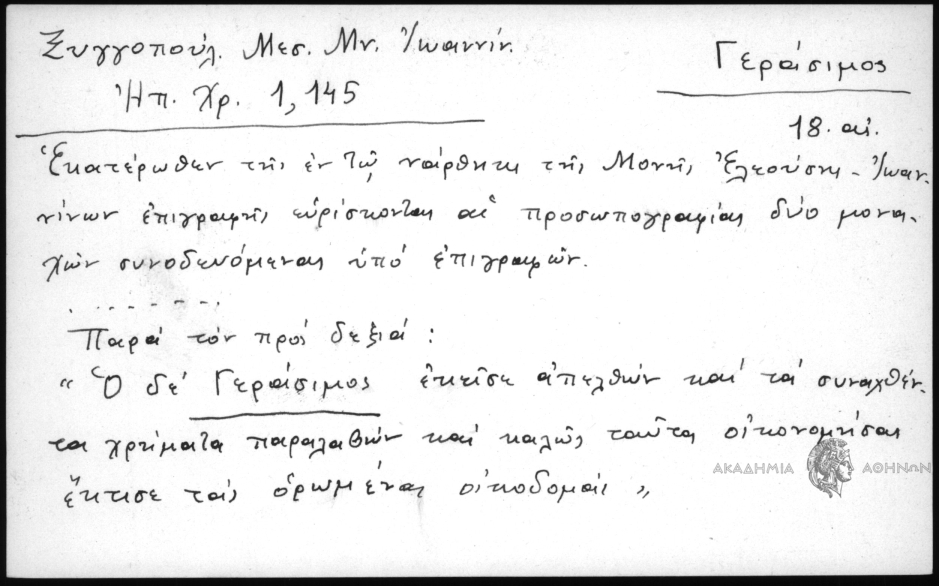 Ξυγγοπούλ. Μεσ. Μν. Ἰωαννίν.
Ἠπ. Χρ. 1, 145
Γεράσιμος
18. αἰ.
Ἑκατέρωθεν τῆς ἐν τῷ νάρθηκι τῆς Μονῆς Ἐλεούσης - Ἰωαν-
νίνων ἐπιγραφῆς εὑρίσκονται αἱ προσωπογραφίαι δύο μονα-
χῶν συνοδευόμεναι ὑπό ἐπιγραφῶν.
. . . . . . .
Παρά τόν πρός δεξιά :
“ Ὁ δέ Γεράσιμος ἐκεῖσε ἀπελθών καί τά συναχθέν-
τα χρήματα παραλαβών καί καλῶς ταῦτα οἰκονομήσας
ἔκτισε τάς ὁρωμένας οἰκοδομάς „
ΑΚΑΔΗΜΙΑ ΑΘΗΝΩΝ